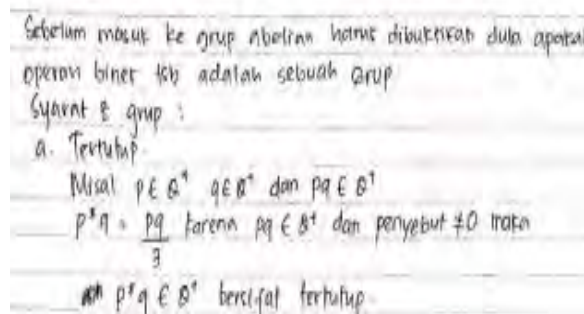 Sebelum masuk ke grup abelian harus dibuktikan dulu apakah
operasi biner tsb adalah sebuah Grup
Syarat² grup :
a. Tertutup.
Misal p ∈ Q⁺ q ∈ Q⁺ dan pq ∈ Q⁺
p*q = pq/3 karena pq ∈ Q⁺ dan penyebut ≠0 maka
p*q ∈ Q⁺ bersifat tertutup.